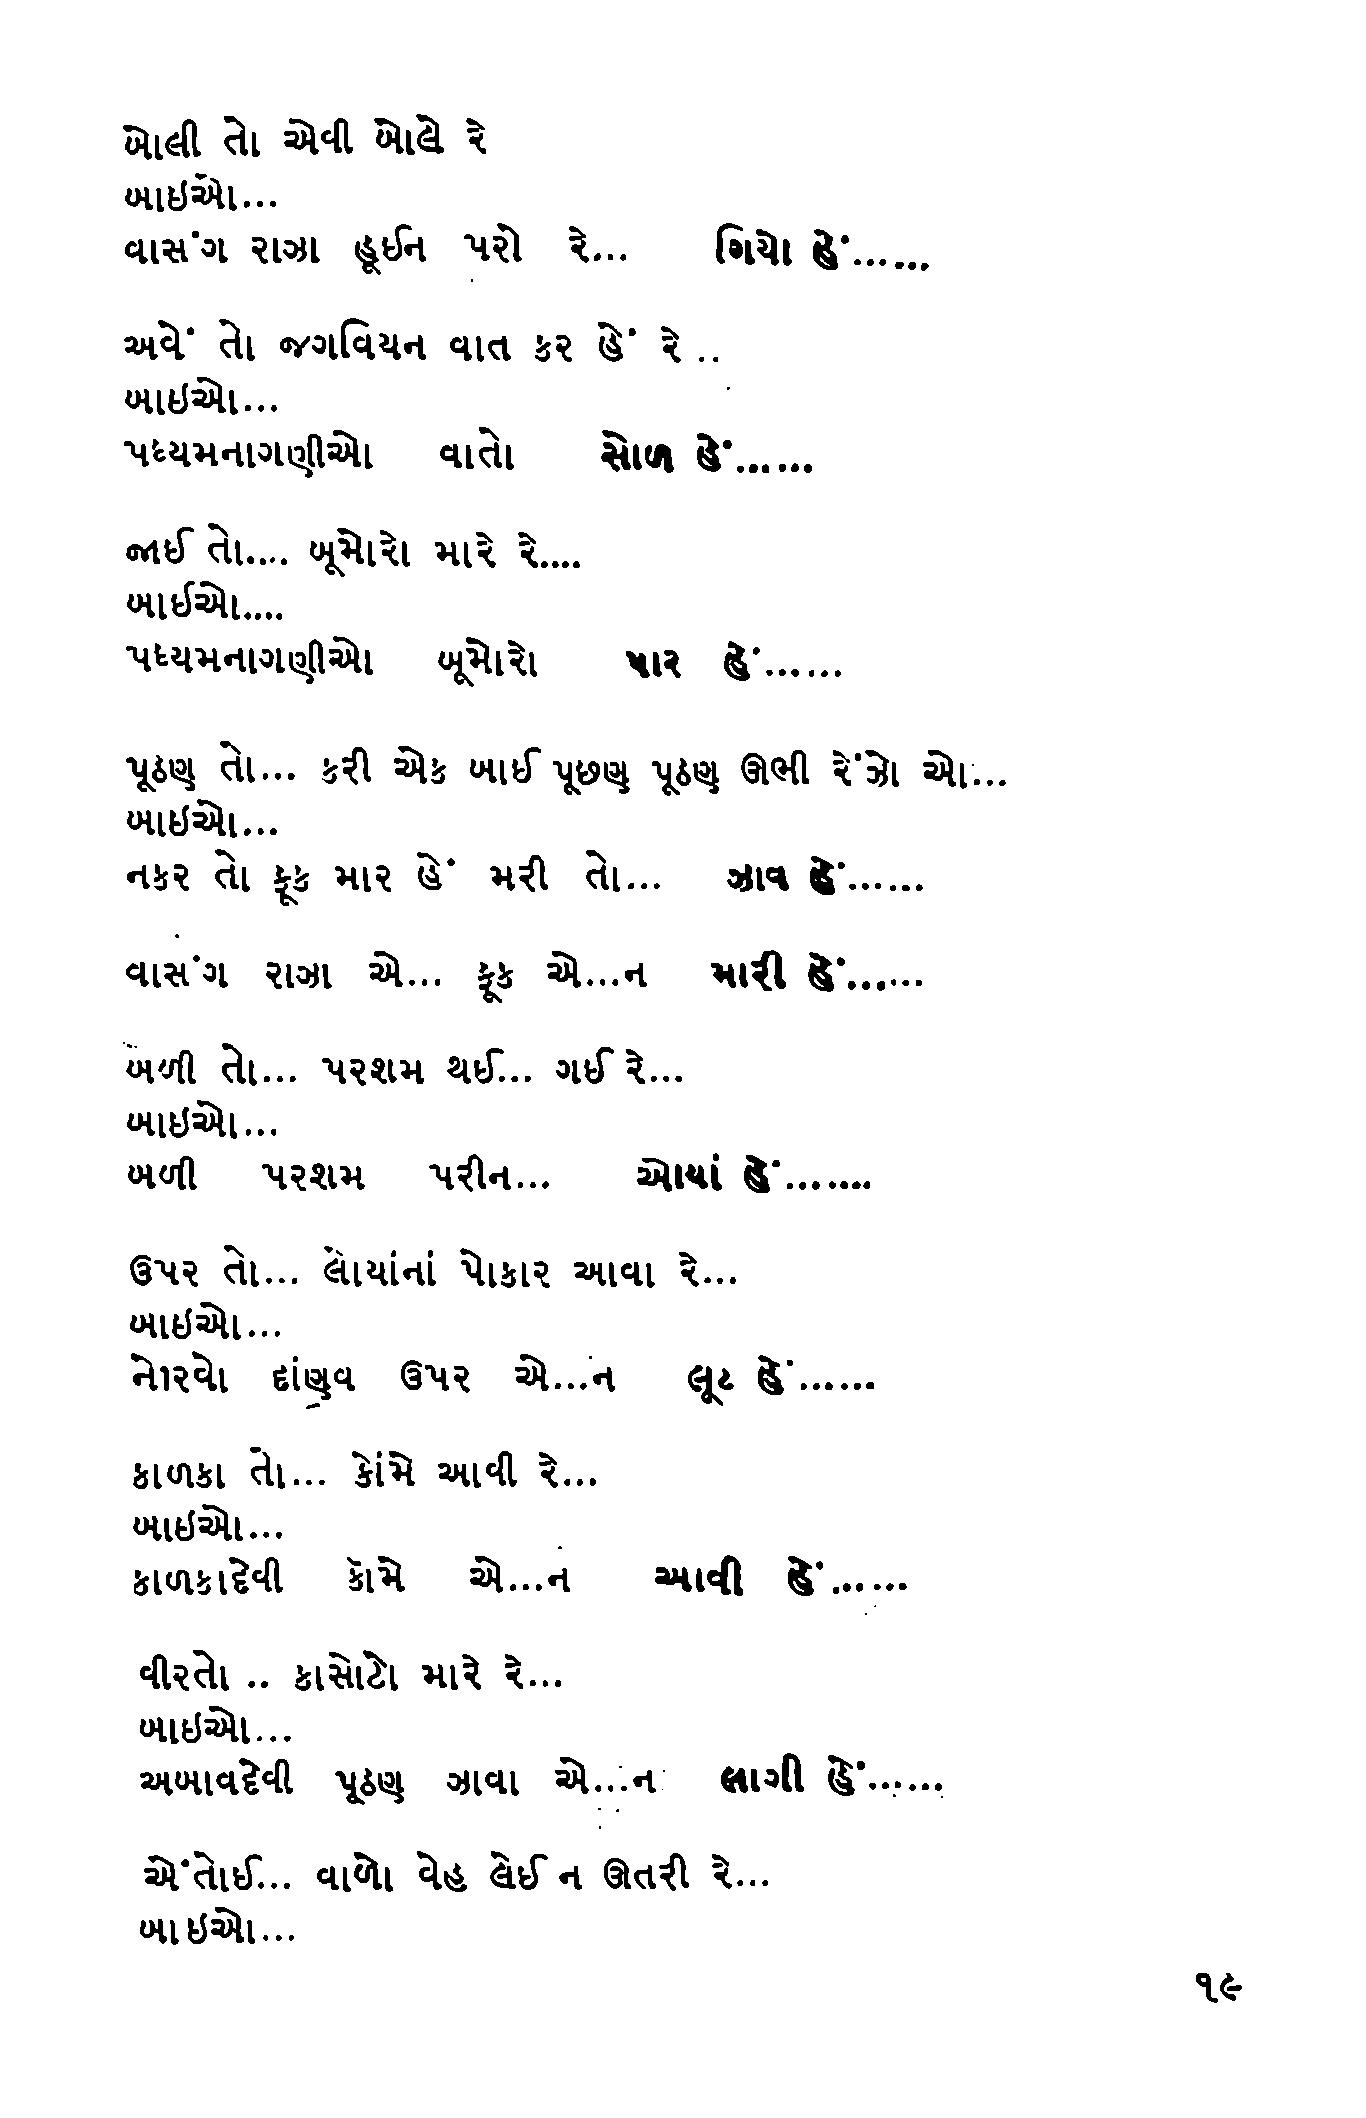 બોલી તો એવી બોલે રે
બાઇઓ...
વાસંગ રાઝા હૂઈન પરો રે... ગિયો હેં......
અવેં તો જગવિયન વાત કર હેં રે ..
બાઇઓ...
પધ્યમનાગણીઓ વાતો સોળ હેં......
જાઈ તો.... બૂમોરો મારે રે....
બાઈઓ....
પધ્યમનાગણીઓ બૂમોરો પાર હેં......
પૂઠણ તો... કરી એક બાઈ પૂછણ પૂઠણ ઊભી રેંઝો ઓ...
બાઇઓ...
નકર તો ફૂક માર હેં મરી તો... ઝાવ હેં......
વાસંગ રાઝા એ... ફૂક એ...ન મારી હેં......
બળી તો... પરશમ થઈ... ગઈ રે...
બાઇઓ...
બળી પરશમ પરીન... ઓયાં હેં.......
ઉપર તો... લોયાંનાં પોકાર આવા રે...
બાઇઓ...
નોરવો દાંણવ ઉપર એ...ન લૂટ હેં......
કાળકા તો... કોંમે આવી રે...
બાઇઓ...
કાળકાદેવી કૉમે એ...ન આવી હેં......
વીરતો .. કાસોટો મારે રે...
બાઇઓ...
અબાવદેવી પૂઠણ ઝાવા એ...ન લાગી હેં......
એંતોઈ... વાળો વેહ લેઈ ન ઊતરી રે...
બાઇઓ...
૧૯